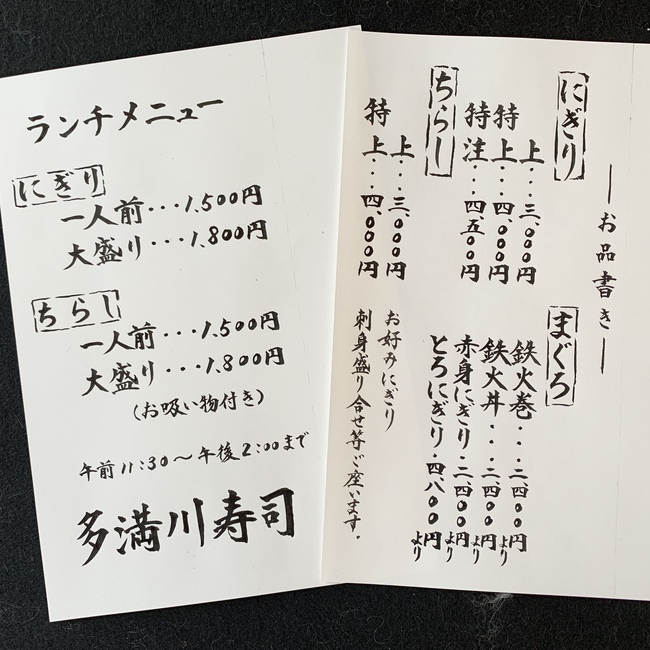 ランチメニュー
にぎり
一人前・・・1,500円
大盛り・・・1,800円
ちらし
一人前・・・1,500円
大盛り・・・1,800円
(お吸い物付き)
午前11:30〜午後2:00まで
多満川寿司
お品書き
にぎり
上・・・・三、〇〇〇円
特上・・・四、〇〇〇円
特注・・・四、五〇〇円
ちらし
上・・・・三、〇〇〇円
特上・・・四、〇〇〇円
まぐろ
鉄火巻・・・二、四〇〇円より
鉄火丼・・・二、四〇〇円より
赤身にぎり・二、四〇〇円より
とろにぎり・四、八〇〇円より
お好みにぎり
刺身盛り合せ等ご座います。